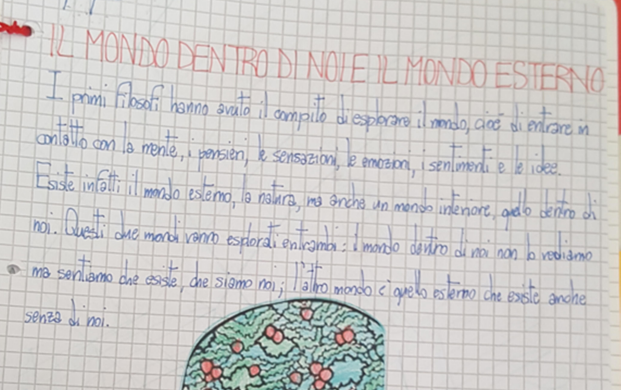 IL MONDO DENTRO DI NOI E IL MONDO ESTERNO
I primi filosofi hanno avuto il compito di esplorare il mondo, cioè di entrare in
contatto con la mente, i pensieri, le sensazioni, le emozioni, i sentimenti e le idee.
Esiste infatti il mondo esterno, la natura, ma anche un mondo interiore, quello dentro di
noi. Questi due mondi vanno esplorati entrambi: il mondo dentro di noi non lo vediamo
ma sentiamo che esiste, che siamo noi; l'altro mondo è quello esterno che esiste anche
senza di noi.